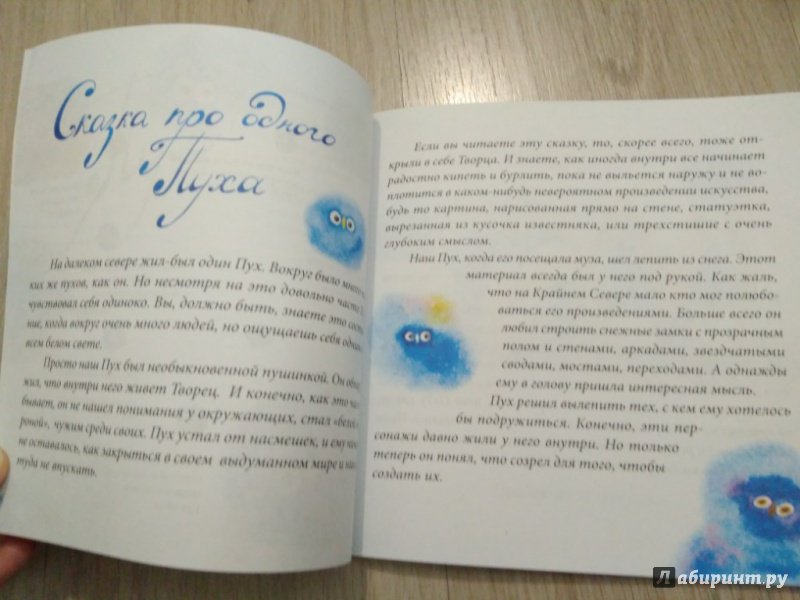 Сказка про одного
Пуха
На далеком севере жил-был один Пух. Вокруг было много
ких же пухов, как он. Но несмотря на это довольно часто
чувствовал себя одиноко. Вы, должно быть, знаете это
ние, когда вокруг очень много людей, но ощущаешь себя
всем белом свете.
Просто наш Пух был необыкновенной пушинкой. Он
жил, что внутри него живет Творец. И конечно, как это
бывает, он не нашел понимания у окружающих, стал «белой
роной», чужим среди своих. Пух устал от насмешек, и ему
не оставалось, как закрыться в своем выдуманном мире и
туда не впускать.
Если вы читаете эту сказку, то, скорее всего, тоже от-
крыли в себе Творца. И знаете, как иногда внутри все начинает
радостно кипеть и бурлить, пока не выльется наружу и не во-
плотится в каком-нибудь невероятном произведении искусства,
будь то картина, нарисованная прямо на стене, статуэтка,
вырезанная из кусочка известняка, или трехстишие с очень
глубоким смыслом.
Наш Пух, когда его посещала муза, шел лепить из снега. Этот
материал всегда был у него под рукой. Как жаль,
что на Крайнем Севере мало кто мог полюбо-
ваться его произведениями. Больше всего он
любил строить снежные замки с прозрачным
полом и стенами, аркадами, звездчатыми
сводами, мостами, переходами. А однажды
ему в голову пришла интересная мысль.
Пух решил вылепить тех, с кем ему хотелось
бы подружиться. Конечно, эти пер-
сонажи давно жили у него внутри. Но только
теперь он понял, что созрел для того, чтобы
создать их.
Лабиринт.ру